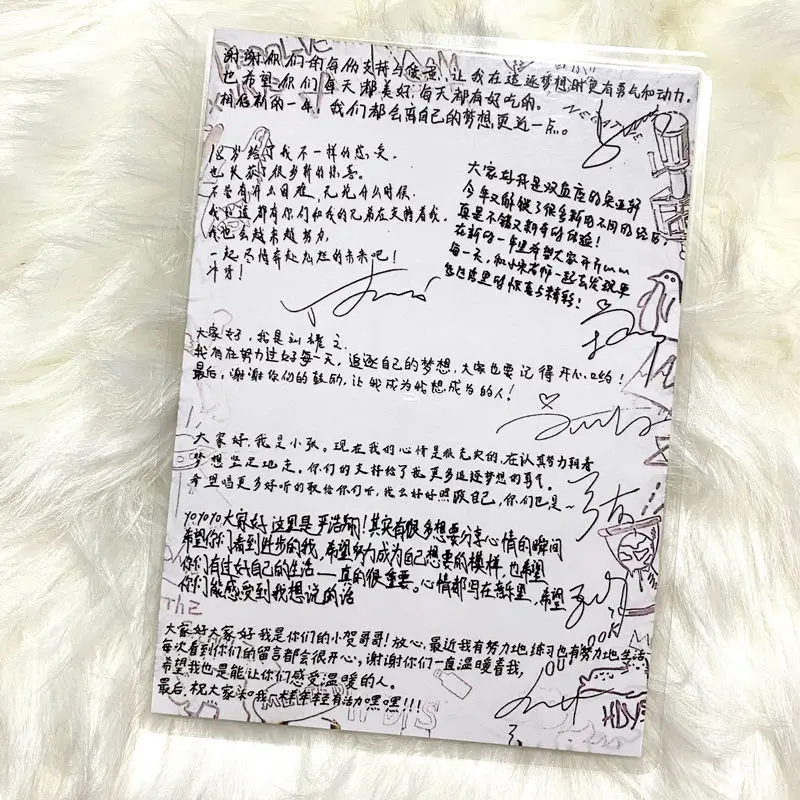 谢谢你们的每份支持与偏爱,让我在追逐梦想时更有勇气和动力.
也希望你们每天都美好,每天都有好吃的。
相信新的一年,我们都会离自己的梦想更近一点。
18岁给了我不一样的感受.
也收获了很多新的惊喜。
不管有什么困难,无论什么时候.
我知道都有你们和我的兄弟在支持着我.
我也会越来越努力.
一起尽情奔赴灿烂的未来吧!
斗牙!
大家好我是双鱼座的宋亚轩
今年又解锁了很多新的不同的经历,
真是不错又新奇的体验!
在新的一年里希望大家开开心心
每一天,和小宋老师一起去发现
这里的惊喜与精彩!
大家好,我是刘耀文
我有在努力过好每一天,追逐自己的梦想,大家也要记得开心哟!
最后,谢谢你们的鼓励,让我成为我想成为的人!
大家好.我是小张。现在我的心情是很充实的,在认真努力朝着
梦想坚定地走。你们的支持给了我更多追逐梦想的勇气。
希望唱更多好听的歌给你们听,我会好好照顾自己,你们也是~
yo yo yo大家好 这里是严浩翔!其实有很多想要分享心情的瞬间
希望你们看到进步的我,希望努力成为自己想要的模样,也希望
你们有过好自己的生活——真的很重要。心情都写在音乐里,希望
你们能感受到我想说的话
The
大家好大家好 我是你们的小贺哥哥!放心,最近我有努力地练习也有努力地生活
每次看到你们的留言都会很开心,谢谢你们一直温暖着我,
希望我也是能让你们感受温暖的人。
最后 祝大家和我一样年轻有活力嘿嘿!!!